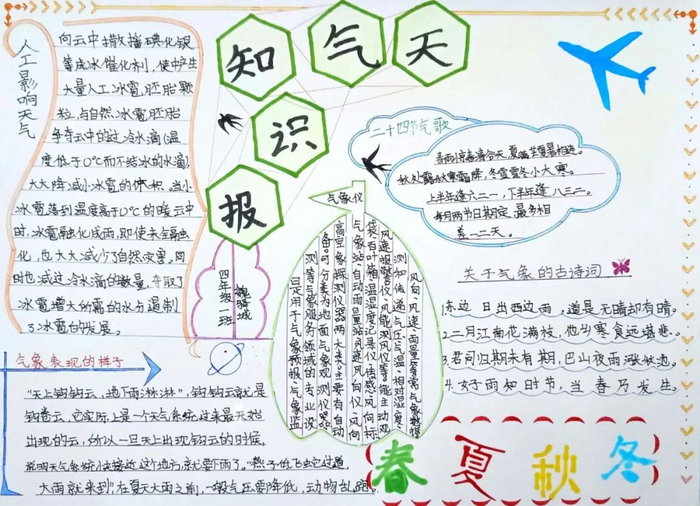 天气知识报
人工影响天气
向云中撒播碘化银
等成冰催化剂，使中产生
大量人工冰雹胚胎颗
粒，与自然冰雹胚胎
争夺云中的过冷水滴(温
度低于0℃而不结冰的水滴)
大大降减小冰雹的体积，当小
冰雹落到温度高于0℃的暖云中
时，冰雹融化成雨，即使未全融
化，也大大减少了自然灾害，同
时也减过冷水滴的数量，夺取了
冰雹增大所需的水分遏制
了冰雹的发展。
四年级一班
二十四节气歌
春雨惊春清谷天，夏满芒夏暑相连。
秋处露秋寒霜降，冬雪雪冬小大寒。
上半年逢六二一，下半年逢八二三。
每月两节日期定，最多相
差一二天。
气象仪
风向、风速、雨量等常气象数据
测如传递气压气温、相对湿度
风速报警仪、风能测风仪等。能主动观
袋、有叶箱温湿度记录仪传感风向标
气象站、自动雨量站风速风向仪、风向
高空气象探测仪器两大类。主要有自动
备。可分类为地面气象观测仪器
测等气象服务领域的专业设
是用于气象预报、气象监
关于气象的古诗词
1.东边日出西边雨，道是无晴却有晴。
2.二月江南花满枝，他乡寒食远堪悲。
3.君问归期未有期，巴山夜雨涨秋池。
4.好雨知时节，当春乃发生。
气象表现的样子
“天上钩钩云，地下雨淋淋”，钩钩云就是
钩卷云，它实际上是一个天气系统过来最先
出现的云，所以一旦天上出现钩云的时候，
说明天气系统快接近这个地方，就要下雨了。“燕子低飞
大雨就来到”在夏天大雨之前，一般气压要降低，动物
春夏秋冬